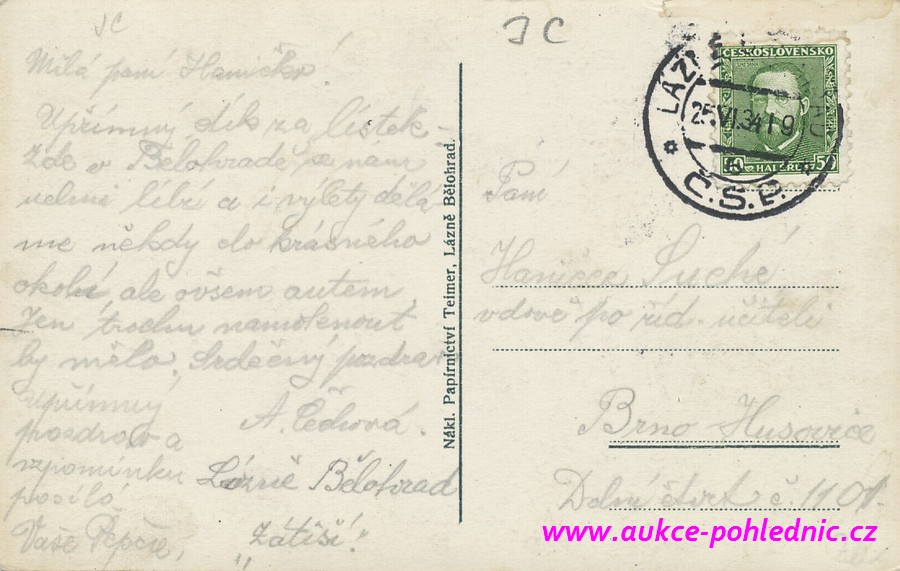 JC
JC
Milá paní Haničko!
Upřímný dík za lístek.
Zde v Bělohradě se nám
velmi líbí a i výlety dělá
me někdy do krásného
okolí, ale ovšem autem,
Jen trochu namoknout
by mělo. Srdečný pozdrav
A. Čechová.
Upřímný
pozdrav a
vzpomínku
posílá
Vaše Pepča,
Lázně Bělohrad
„Zátiší."
Nákl. Papírnictví Teimer, Lázně Bělohrad.
ČESKOSLOVENSKO
50 HALÉŘŮ 50
LÁZNĚ
25.VI.34 I 9
Č.S.R.
Paní
Hanicce Suché
vdově po říd. učiteli
Brno Husovice
Dolní čtvrt č. 1101
www.aukce-pohlednic.cz